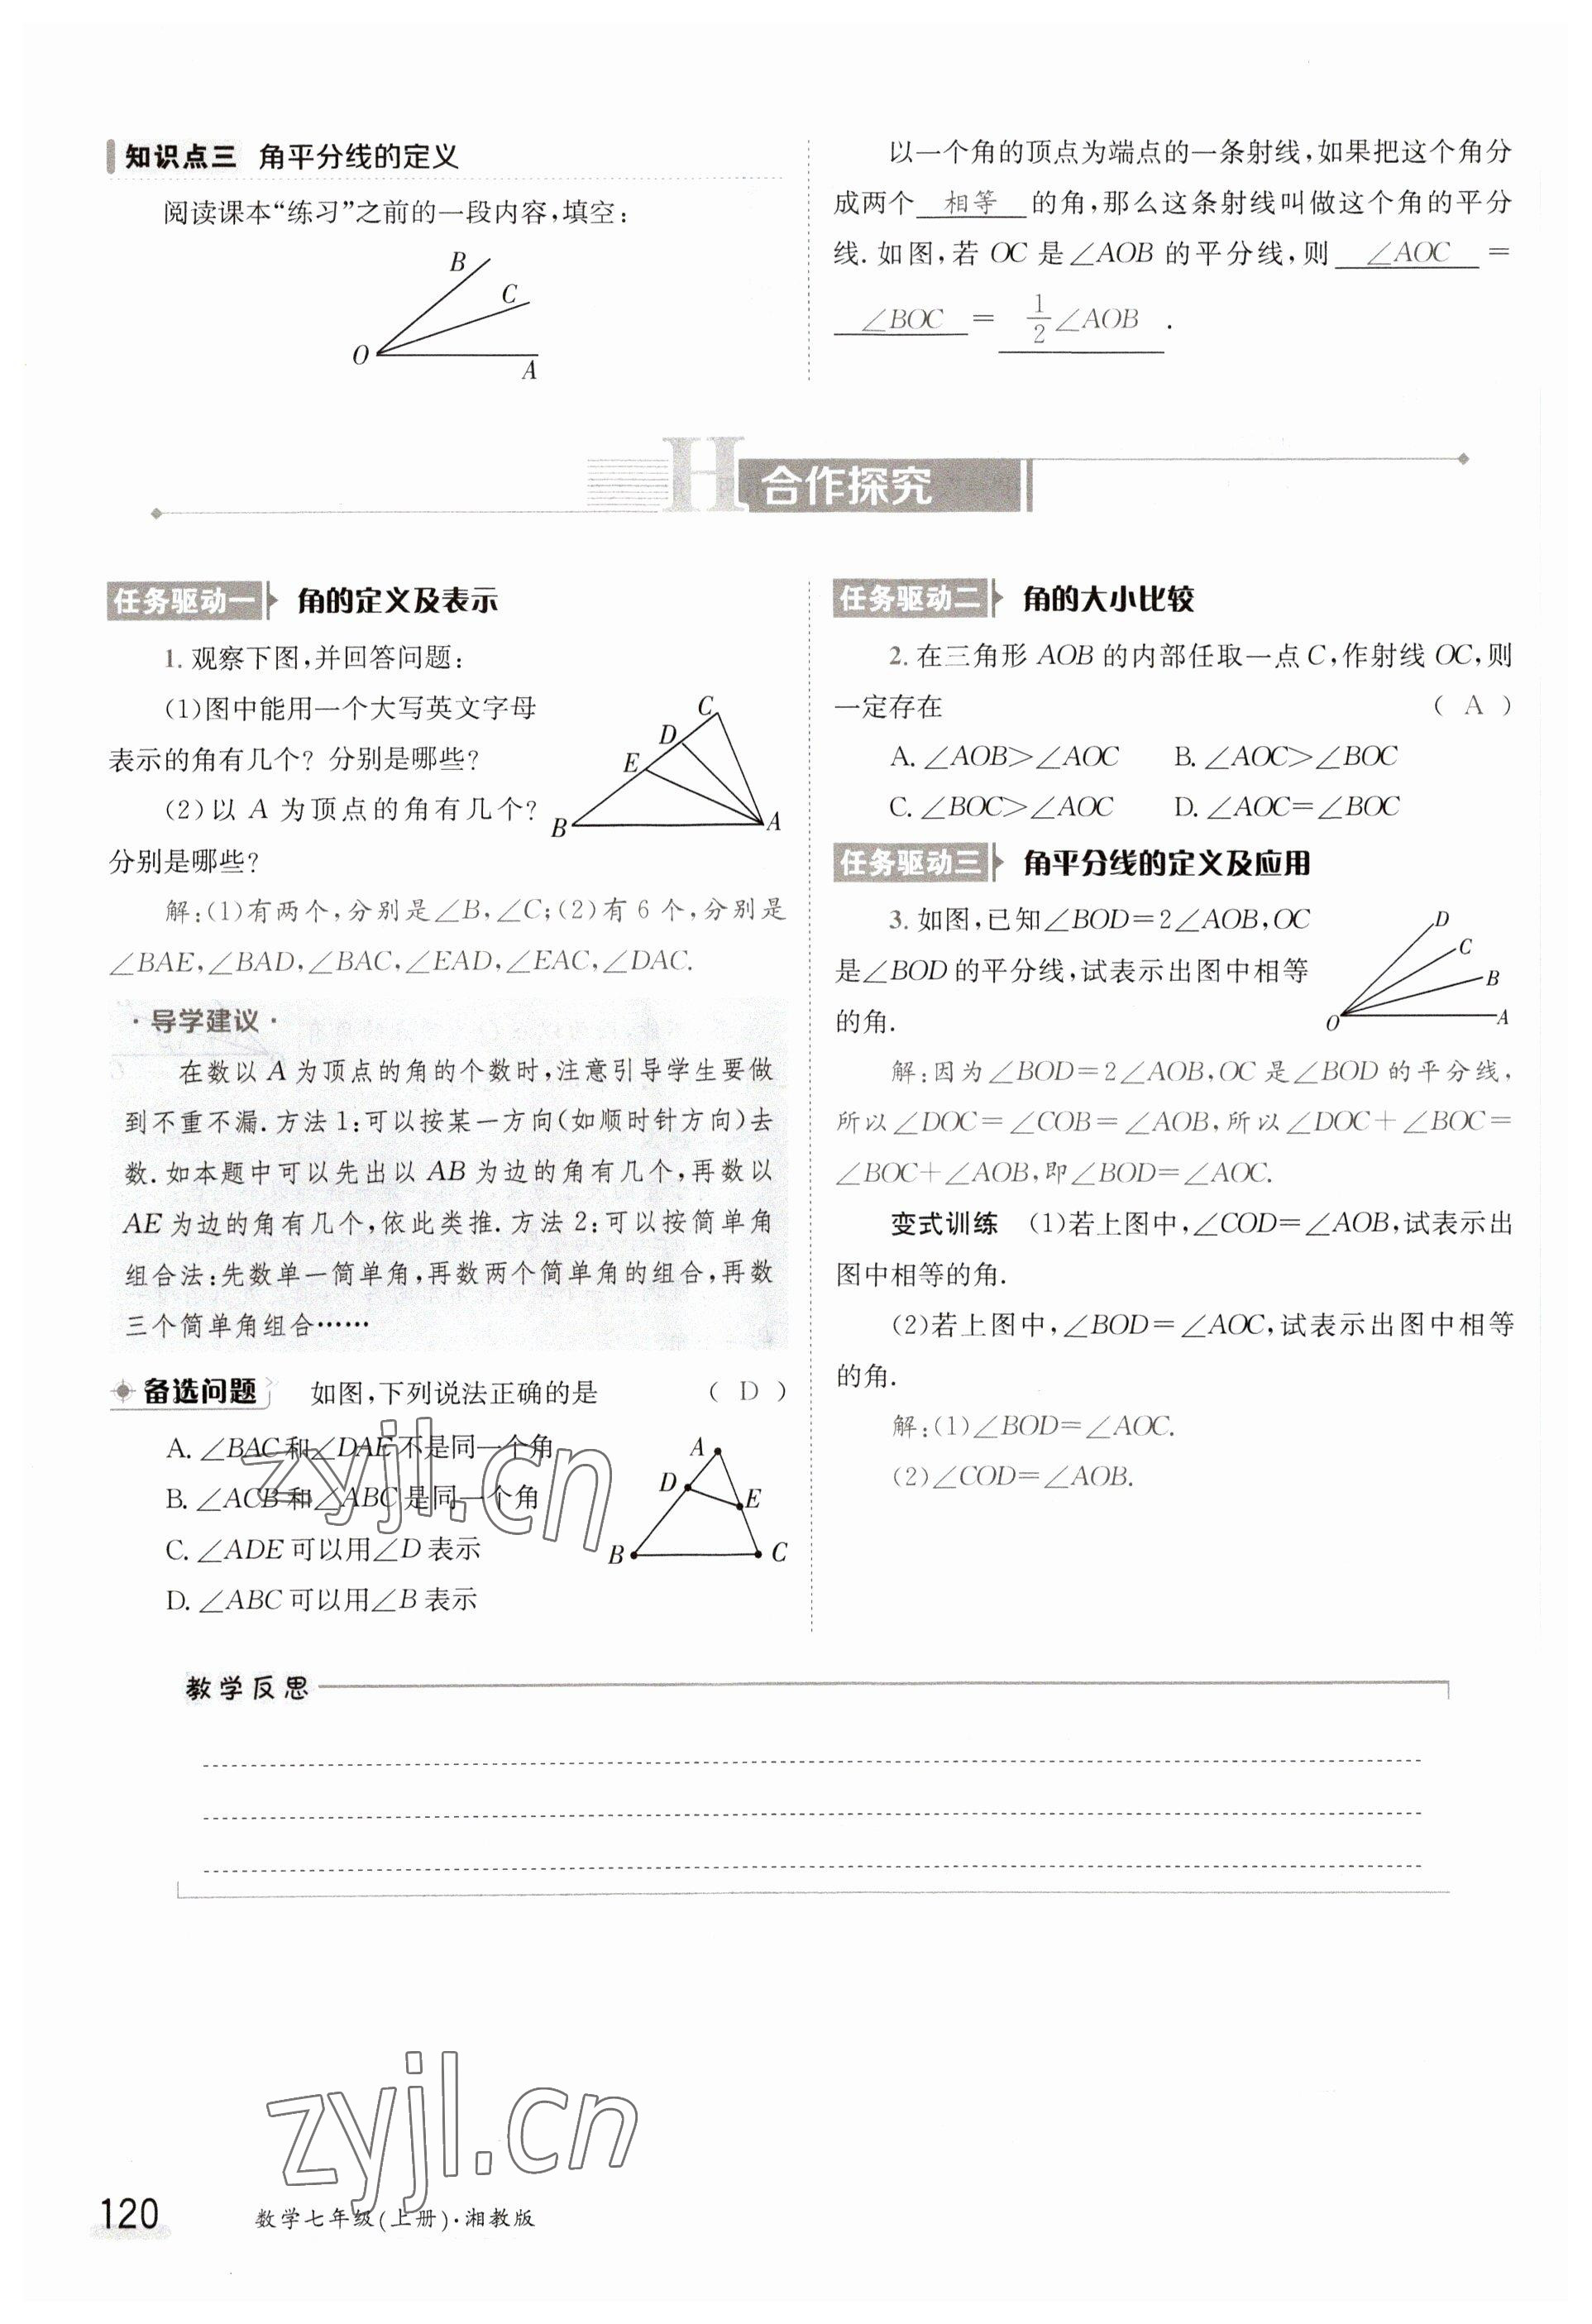 知识点三 角平分线的定义
阅读课本“练习”之前的一段内容,填空:
B
C
O
A
以一个角的顶点为端点的一条射线,如果把这个角分
成两个 相等 的角,那么这条射线叫做这个角的平分
线.如图,若 OC 是∠AOB 的平分线,则 ∠AOC =
∠BOC = 1/2∠AOB .
H 合作探究
任务驱动一 角的定义及表示
1.观察下图,并回答问题:
(1)图中能用一个大写英文字母
表示的角有几个? 分别是哪些?
(2)以 A 为顶点的角有几个?
分别是哪些?
C
D
E
B
A
解:(1)有两个,分别是∠B,∠C;(2)有 6 个,分别是
∠BAE,∠BAD,∠BAC,∠EAD,∠EAC,∠DAC.
·导学建议·
在数以 A 为顶点的角的个数时,注意引导学生要做
到不重不漏.方法1:可以按某一方向(如顺时针方向)去
数.如本题中可以先出以 AB 为边的角有几个,再数以
AE 为边的角有几个,依此类推.方法2:可以按简单角
组合法:先数单一简单角,再数两个简单角的组合,再数
三个简单角组合……
备选问题 如图,下列说法正确的是 ( D )
A.∠BAC和∠DAE不是同一个角
B.∠ACB和∠ABC是同一个角
C.∠ADE可以用∠D表示
D.∠ABC可以用∠B表示
A
D
E
B
C
任务驱动二 角的大小比较
2.在三角形 AOB 的内部任取一点 C,作射线 OC,则
一定存在 ( A )
A.∠AOB>∠AOC B.∠AOC>∠BOC
C.∠BOC>∠AOC D.∠AOC=∠BOC
任务驱动三 角平分线的定义及应用
3.如图,已知∠BOD=2∠AOB,OC
是∠BOD的平分线,试表示出图中相等
的角.
D
C
B
O
A
解:因为∠BOD=2∠AOB,OC 是∠BOD 的平分线,
所以∠DOC=∠COB=∠AOB,所以∠DOC+∠BOC=
∠BOC+∠AOB,即∠BOD=∠AOC.
变式训练 (1)若上图中,∠COD=∠AOB,试表示出
图中相等的角.
(2)若上图中,∠BOD=∠AOC,试表示出图中相等
的角.
解:(1)∠BOD=∠AOC.
(2)∠COD=∠AOB.
教学反思
zyjl.cn
zyjl.cn
120 数学七年级(上册)·湘教版